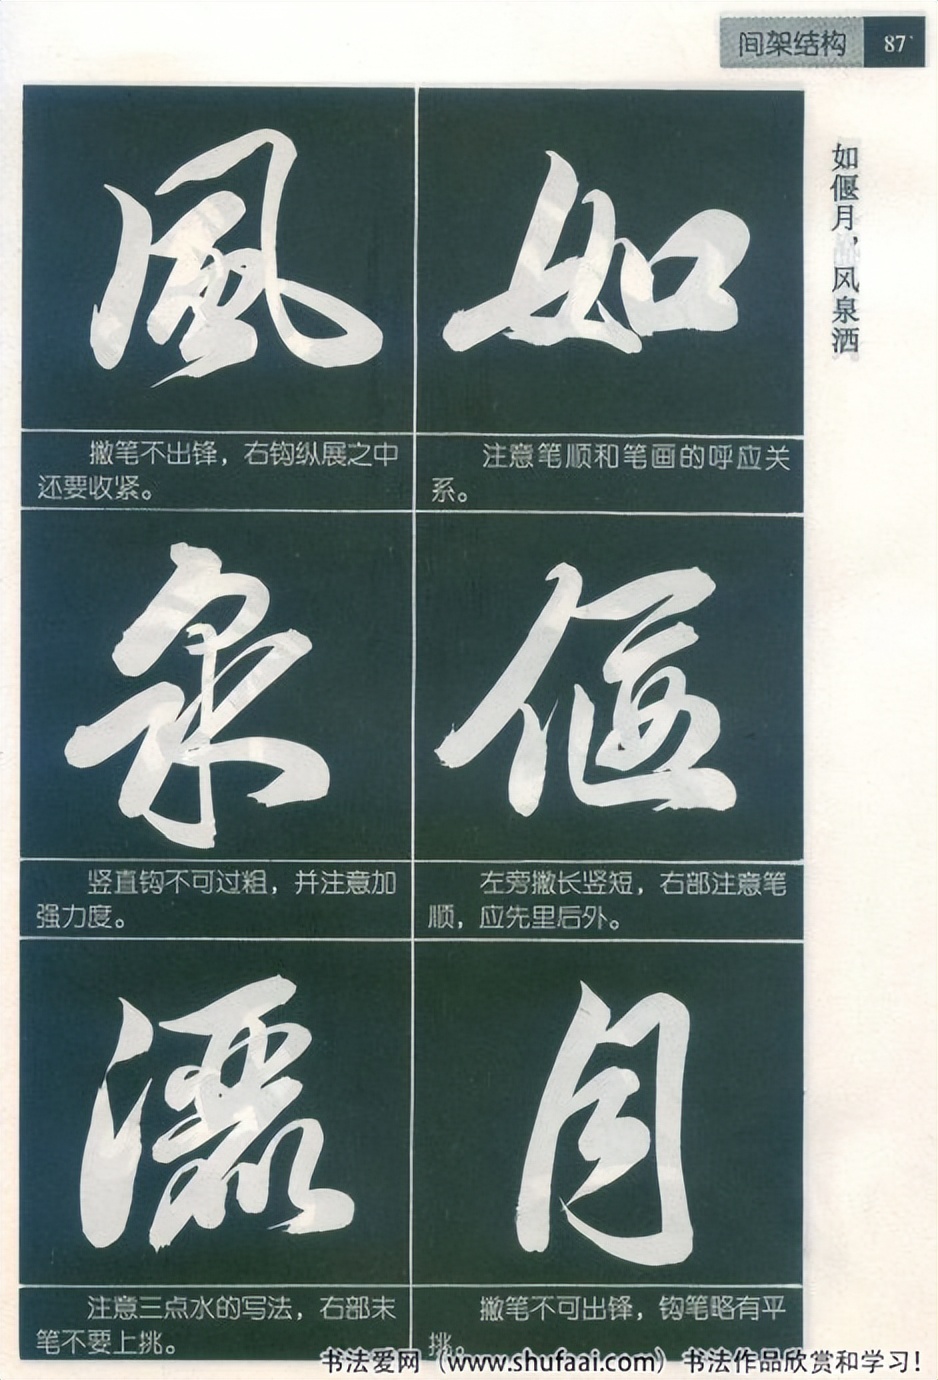 间架结构 87
如偃月，风泉洒
如
注意笔顺和笔画的呼应关
系。
偃
左旁撇长竖短，右部注意笔
顺，应先里后外。
月
撇笔不可出锋，钩笔略有平
挑。
風
撇笔不出锋，右钩纵展之中
还要收紧。
泉
竖直钩不可过粗，并注意加
强力度。
灑
注意三点水的写法，右部末
笔不要上挑。
书法爱网（www.shufaai.com） 书法作品欣赏和学习！